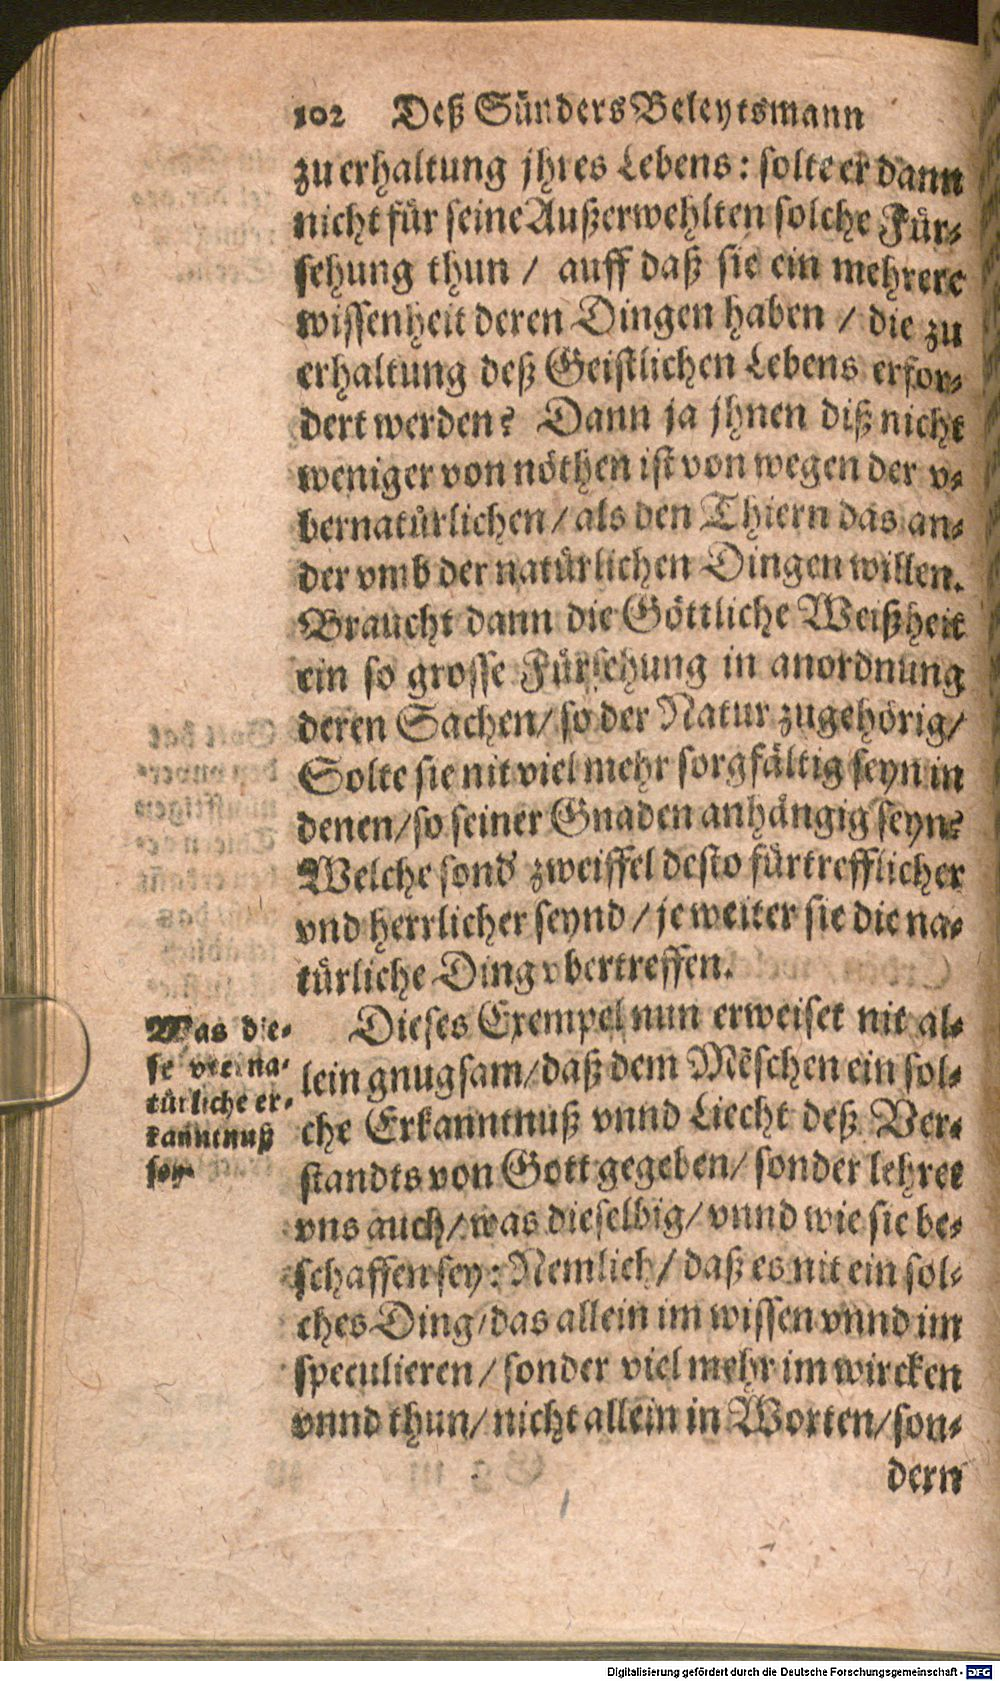 102 Deß Sünders Beleytsmann
zu erhaltung jhres Lebens: solte er dann
nicht für seine Außerwehlten solche Für-
sehung thun / auff daß sie ein mehrere
wissenheit deren Dingen haben / die zu
erhaltung deß Geistlichen Lebens erfor-
dert werden? Dann ja jhnen diß nicht
weniger von nöthen ist von wegen der v-
bernatürlichen / als den Thiern das an-
der vmb der natürlichen Dingen willen.
Braucht dann die Göttliche Weißheit
ein so grosse Fürsehung in anordnung
deren Sachen / so der Natur zugehörig /
Solte sie nit viel mehr sorgfältig seyn in
denen / so seiner Gnaden anhängig seyn?
Welche sond' zweiffel desto fürtrefflicher
vnd herrlicher seynd / je weiter sie die na-
türliche Ding vbertreffen.
Was die-
se vbernа-
türliche er-
kanntnuß
sey.
Dieses Exempel nun erweiset nit al-
lein gnugsam / daß dem Mẽschen ein sol-
che Erkanntnuß vnnd Liecht deß Ver-
standts von Gott gegeben / sonder lehret
vns auch / was dieselbig / vnnd wie sie be-
schaffen sey: Nemlich / daß es nit ein sol-
ches Ding / das allein im wissen vnnd im
speculieren / sonder viel mehr im wircken
vnnd thun / nicht allein in Worten / son-
dern
Digitalisierung gefördert durch die Deutsche Forschungsgemeinschaft - DFG